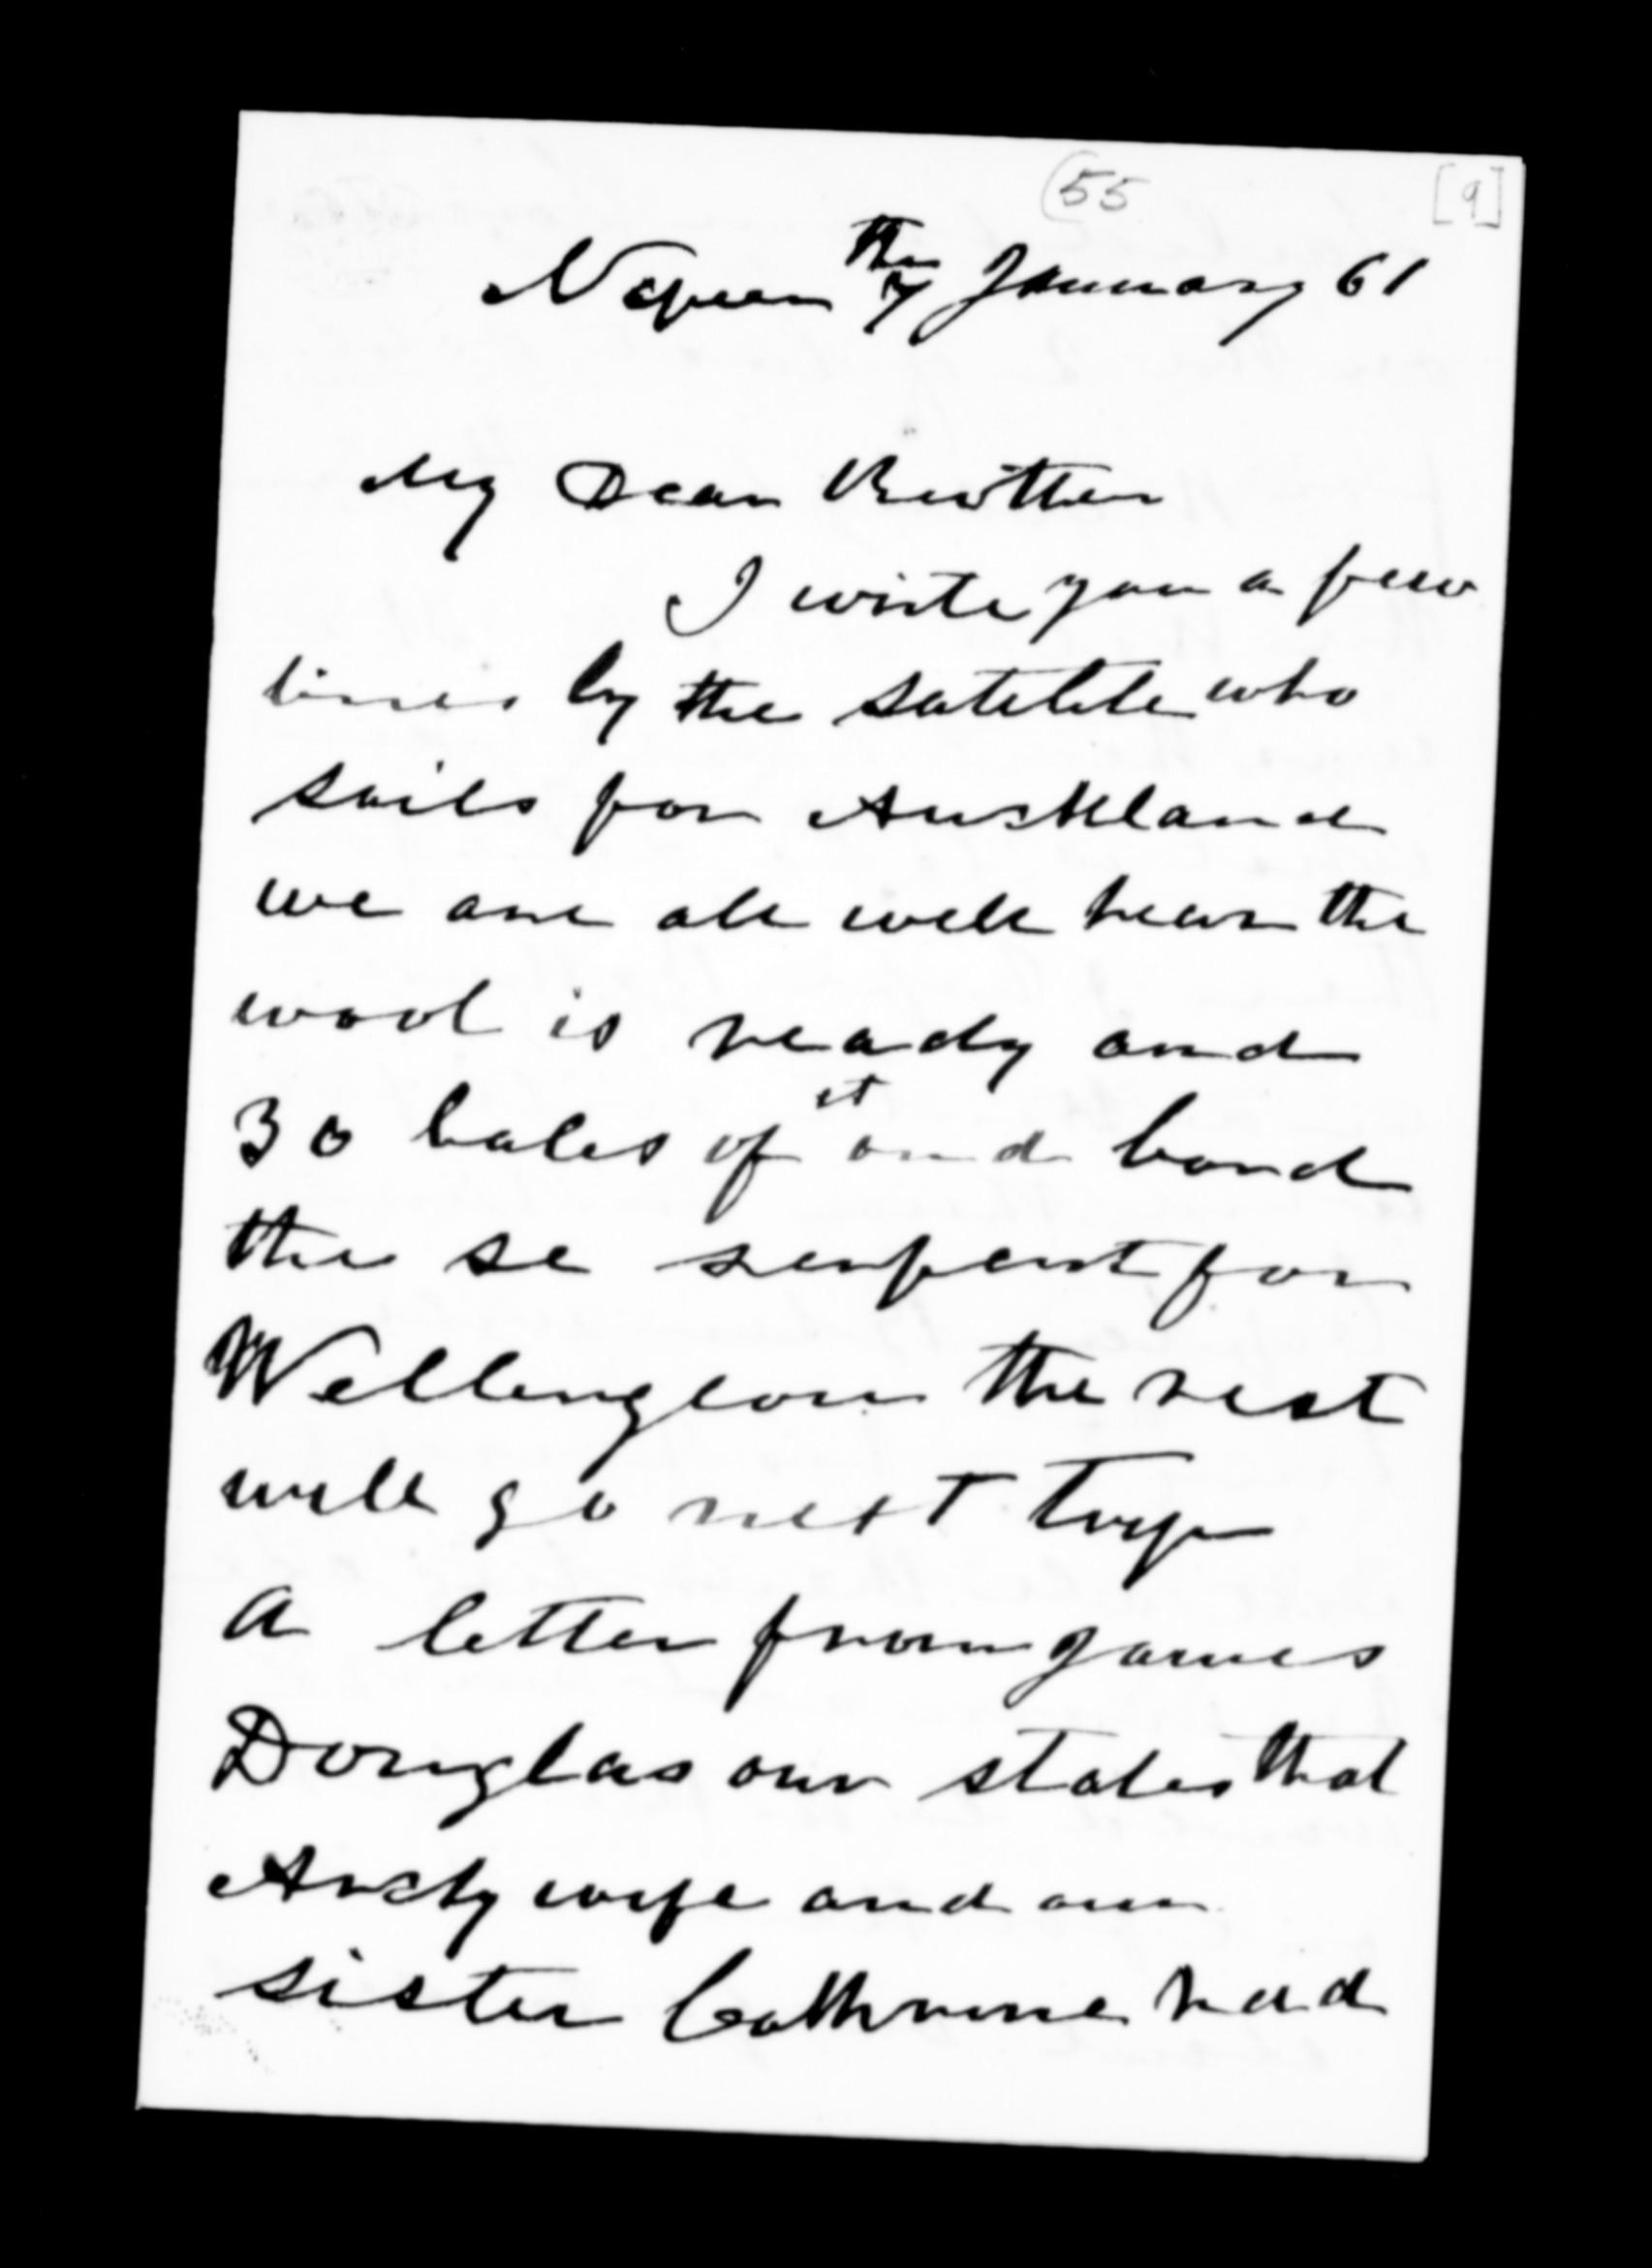 (55 [9]
Napier 7th January 61
My Dear Brother
I write you a few
lines by the Satelite who
sails for Auckland
we are all well hear the
wool is ready and
30 bales of it ond bord
the se serpent for
Wellengton the rest
will go next tryp
a letter from James
Douglas our states that
Archy wife and our
sister Cathrine had